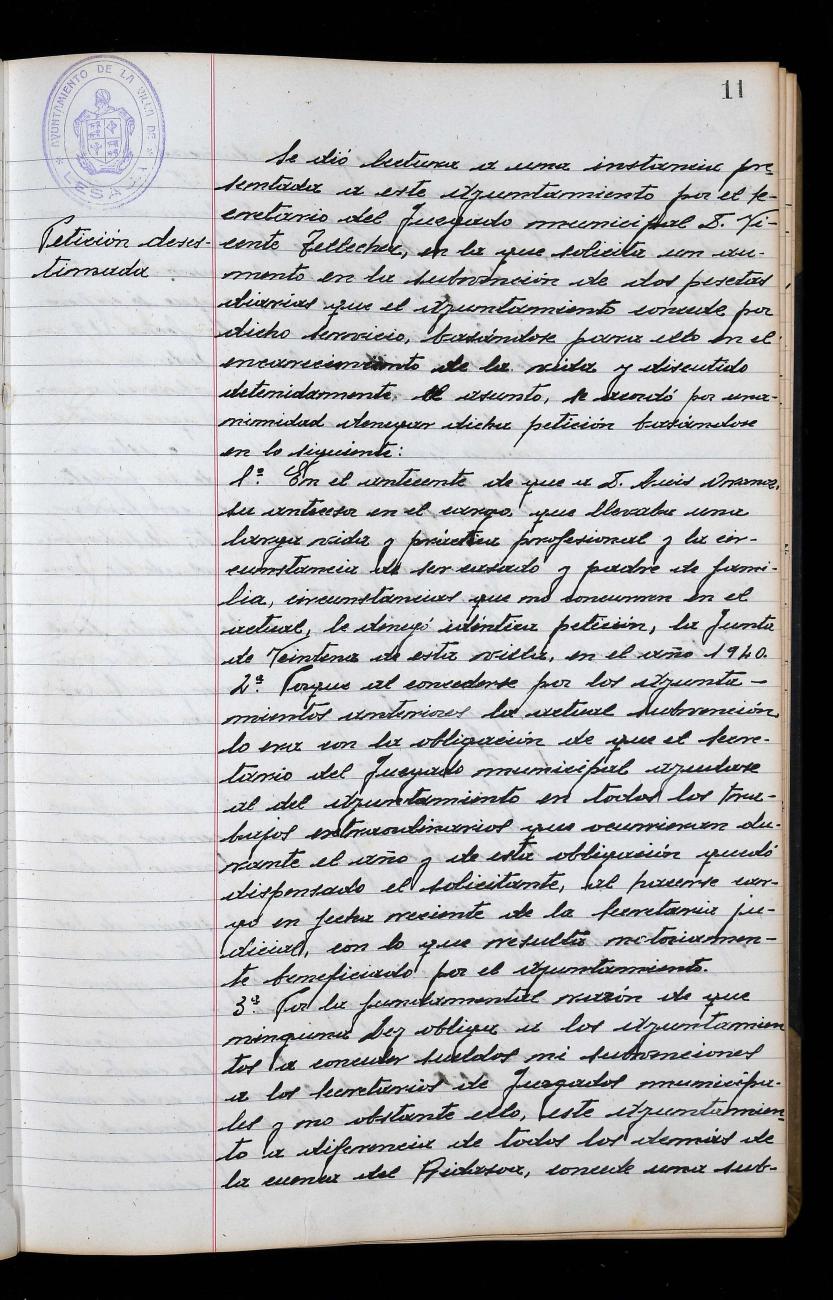 11
AYUNTAMIENTO DE LA VILLA DE
LESACA
Petición deses-
timada
Se dió lectura a una instancia pre
sentada a este Ayuntamiento por el Se-
cretario del Juzgado municipal D. Vi-
cente Tellechea, en la que solicita un au-
mento en la subvención de dos pesetas
diarias que el Ayuntamiento concede por
dicho servicio, basándose para ello en el
encarecimiento de la vida y discutido
detenidamente el asunto, se acordó por una-
nimidad denegar dicha petición basándose
en lo siguiente:
1º. En el antecente de que a D. Luis
su antecesor en el cargo, que llevaba una
larga vida y práctica profesional y la cir-
cunstancia de ser casado y padre de fami-
lia, circunstancias que no concurren en el
actual, le denegó idéntica petición, la Junta
de Veintena de esta villa, en el año 1940.
2ª. Porque al concederse por los Ayunta-
mientos anteriores la actual subvención,
lo era con la obligación de que el Secre-
tario del Juzgado municipal ayudase
al del Ayuntamiento en todos los tra-
bajos extraordinarios que ocurrieran du-
rante el año y de esta obligación quedó
dispensado el solicitante, al hacerse car-
go en fecha reciente de la Secretaria ju-
dicial, con lo que resulta notoriamen-
te beneficiado por el Ayuntamiento.
3ª. Por la fundamental razón de que
ninguna Ley obliga a los Ayuntamien
tos a conceder sueldos ni subvenciones
a los Secretarios de Juzgados municipa-
les y no obstante ello, este Ayuntamien-
to a diferencia de todos los demás de
la cuenca del Bidasoa, concede una sub-